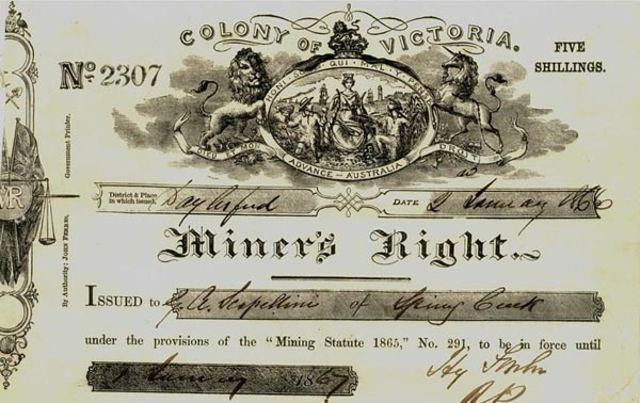 COLONY OF VICTORIA.
FIVE
SHILLINGS.
No 2307
HONI SOIT QUI MAL Y PENSE
DIEU ET MON DROIT
ADVANCE - AUSTRALIA
Government Printer.
By Authority: JOHN FERRES,
District & Place
in which issued, Daylesford
DATE 2 January 1866
Miner's Right.
ISSUED to of Spring Creek
under the provisions of the "Mining Statute 1865," No. 291, to be in force until
1 January 1867